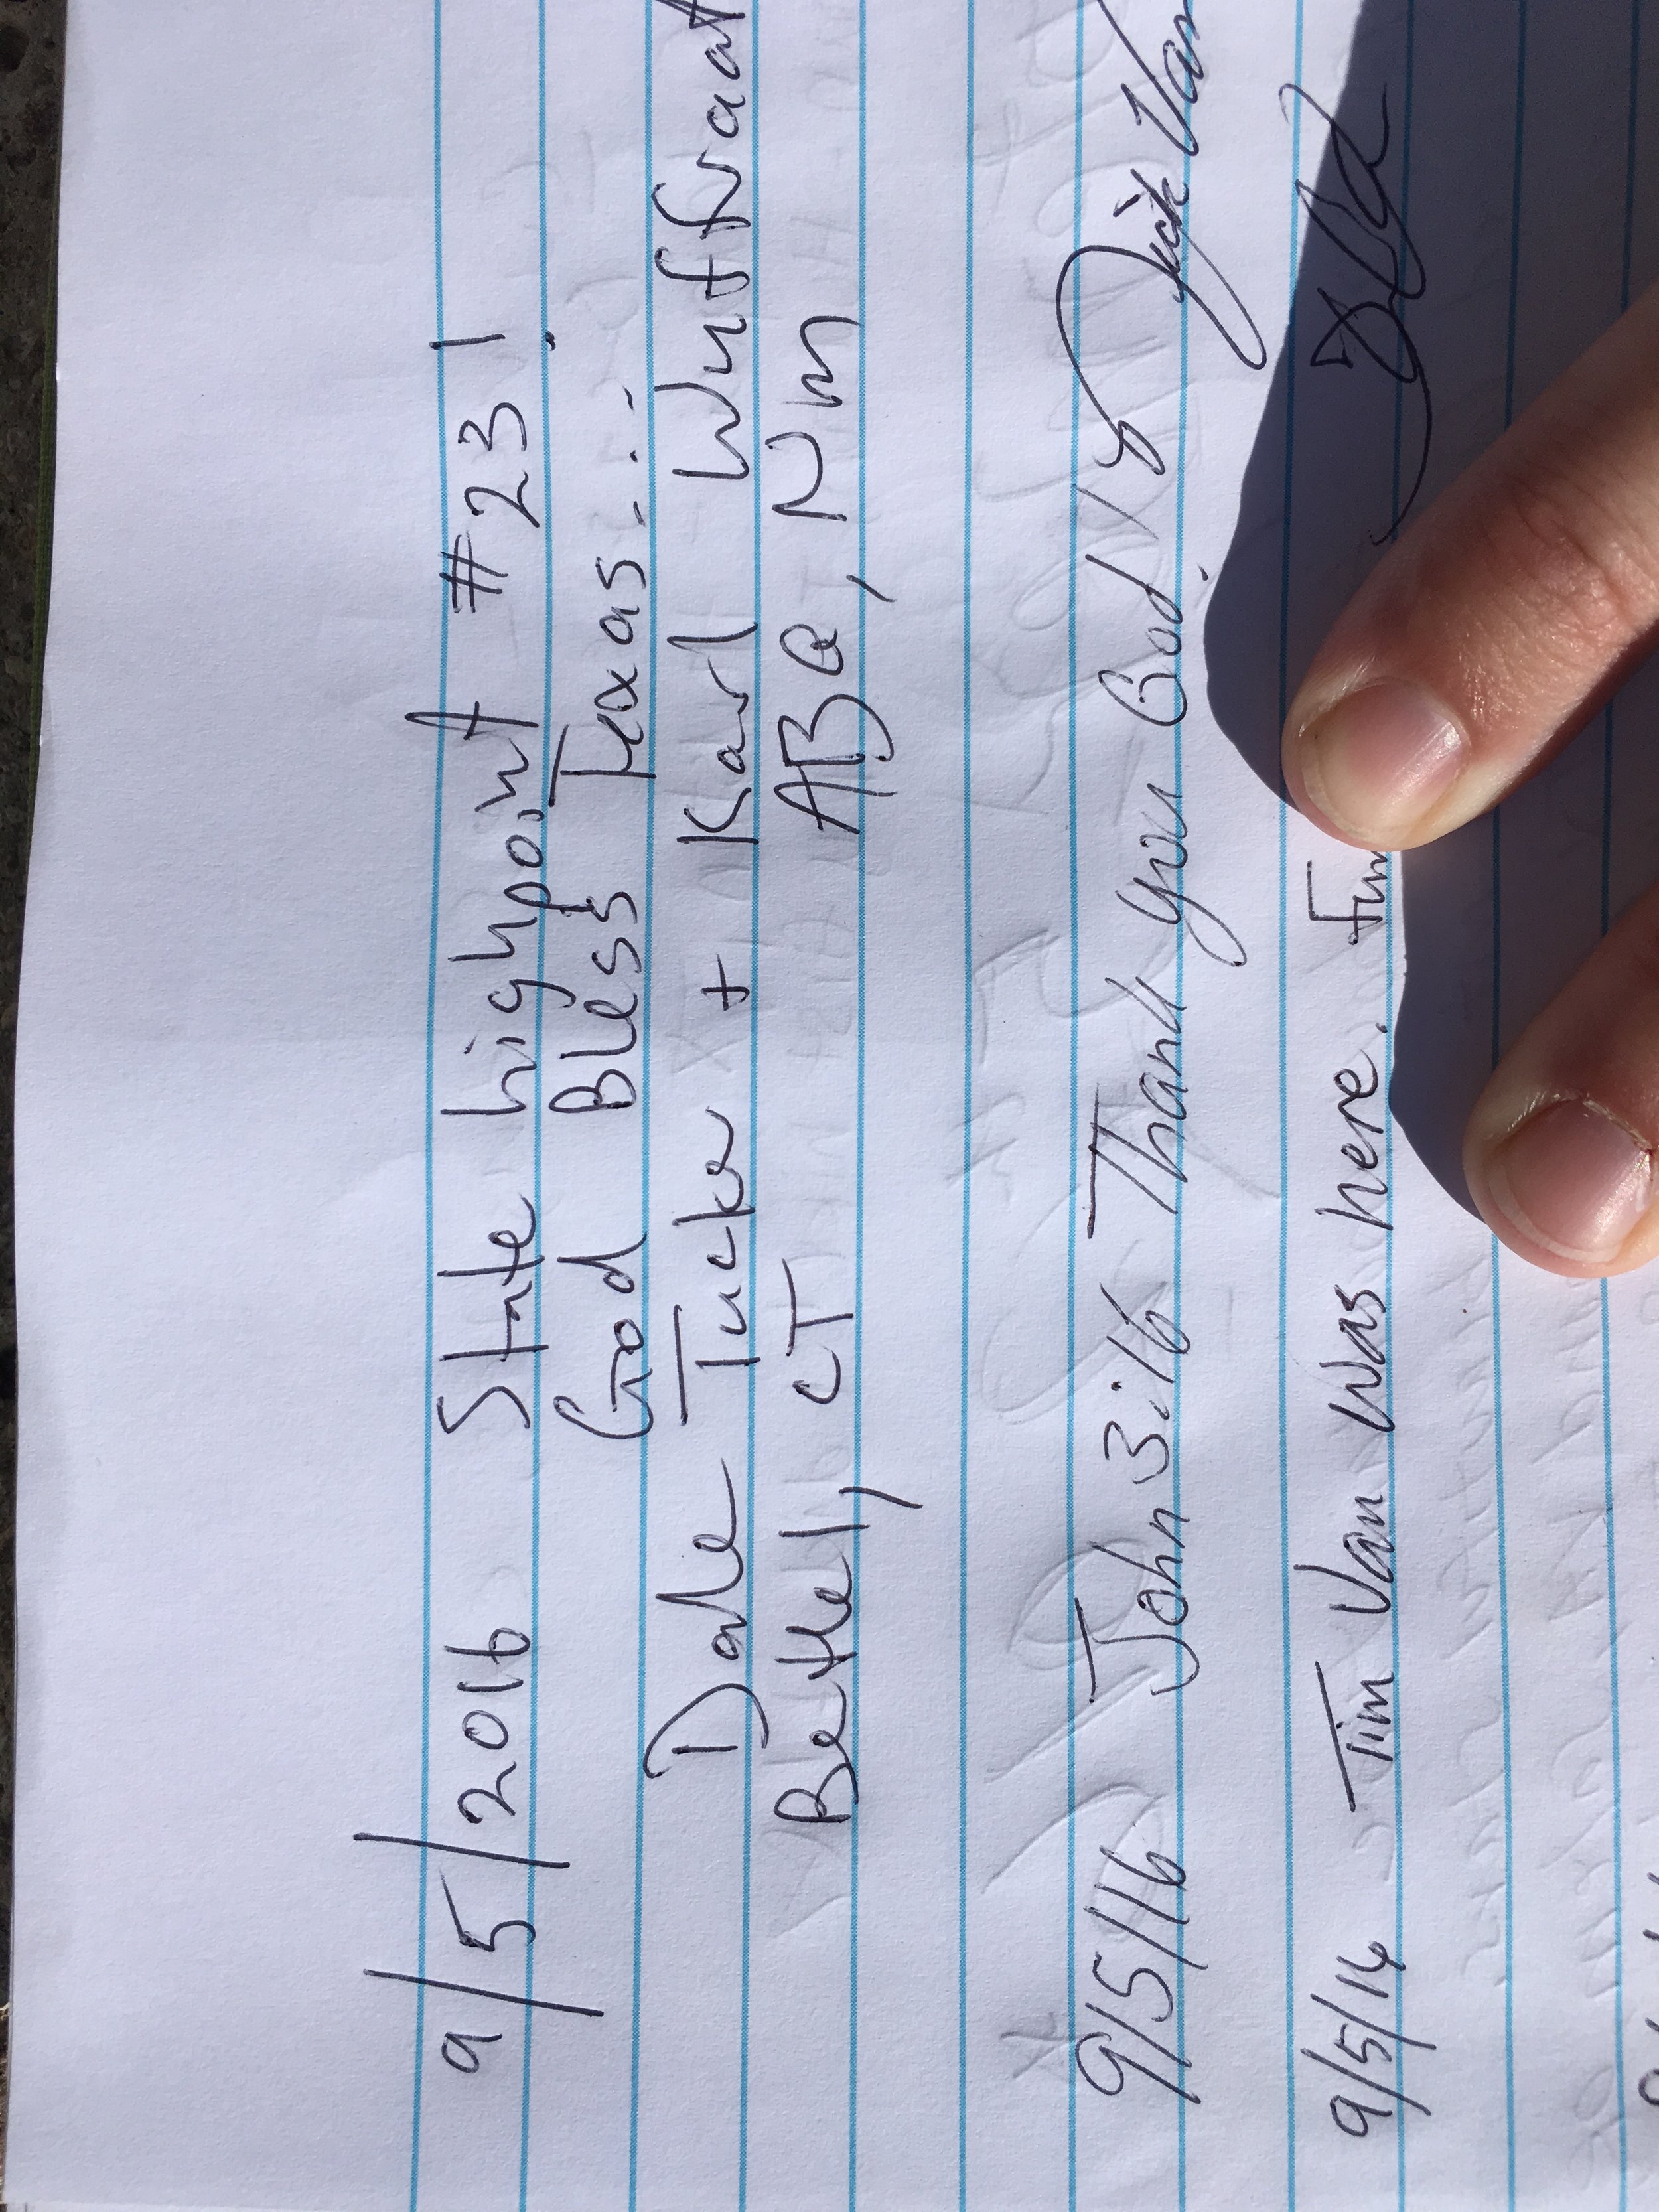 9/5/2016 State highpoint #23!
God Bless Texas...
Dale Tucker + Karl
Bethel, CT ABQ, NM
9/5/16 John 3:16 Thank you God!
9/5/16 Tim Van was here.